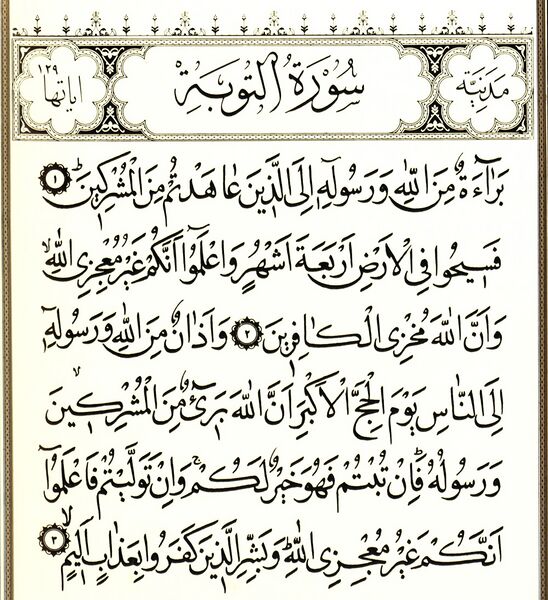 مَدَنِيَّة سُورَةُ التَّوبَةِ اياتها ١٢٩
بَرَآءَةٌ مِنَ اللّٰهِ وَرَسُولِهِٓ اِلَى الَّذِينَ عَاهَدْتُمْ مِنَ الْمُشْرِكِينَۜ ١
فَسِيحُوا فِي الْاَرْضِ اَرْبَعَةَ اَشْهُرٍ وَاعْلَمُٓوا اَنَّكُمْ غَيْرُ مُعْجِزِي اللّٰهِۙ
وَاَنَّ اللّٰهَ مُخْزِي الْكَافِرِينَ ٢ وَاَذَانٌ مِنَ اللّٰهِ وَرَسُولِهِٓ
اِلَى النَّاسِ يَوْمَ الْحَجِّ الْاَكْبَرِ اَنَّ اللّٰهَ بَرِٓيءٌ مِنَ الْمُشْرِكِينَۙ
وَرَسُولُهُۜ فَاِنْ تُبْتُمْ فَهُوَ خَيْرٌ لَكُمْۚ وَاِنْ تَوَلَّيْتُمْ فَاعْلَمُٓوا
اَنَّكُمْ غَيْرُ مُعْجِزِي اللّٰهِۜ وَبَشِّرِ الَّذِينَ كَفَرُوا بِعَذَابٍ اَلِيمٍۙ ٣